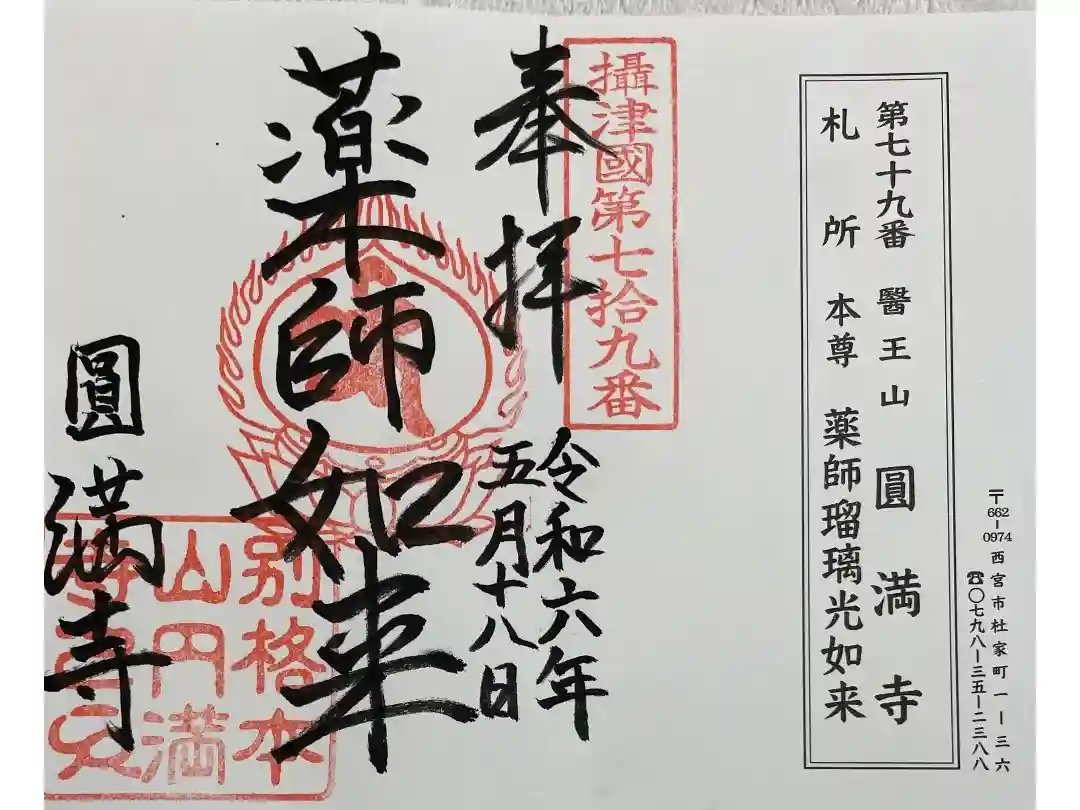 第七十九番 醫王山 圓満寺
札所本尊 薬師瑠璃光如来
〒662-0974 西宮市社家町一ー三六
☎〇七九八ー三五ー二三八八
攝津國第七拾九番
奉拝
令和六年
五月十八日
薬師如来
圓満寺
別格本
山円満
寺之